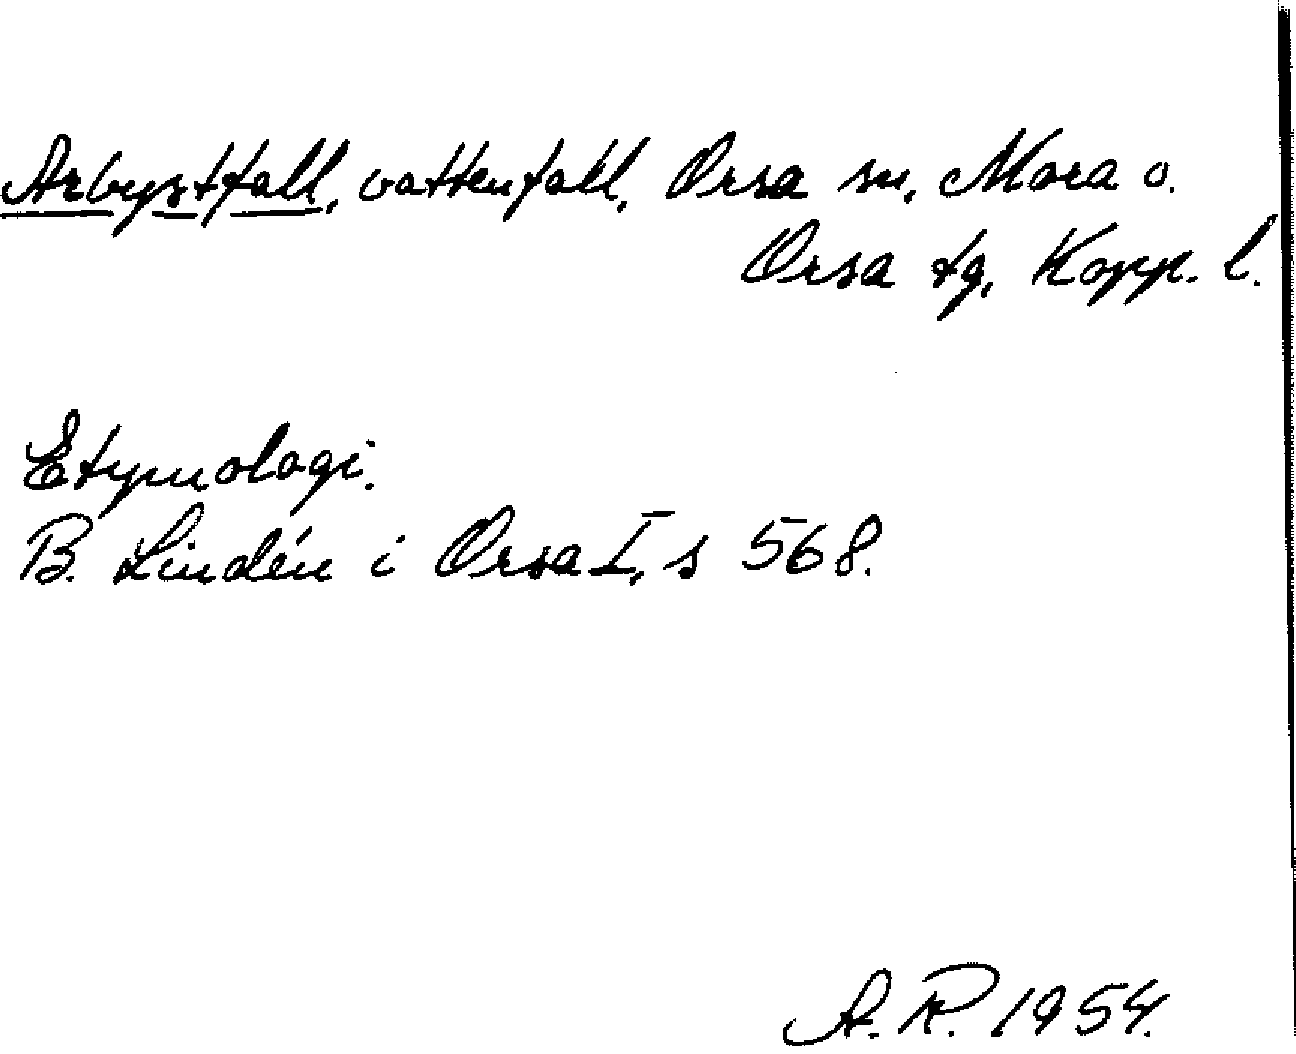 Arbystfall, vattenfall, Orsa sn, Mora o.
Orsa tg, Kopp. l.
Etymologi.
B. Lindén i Orsa I, s 568.
A. R. 1954.